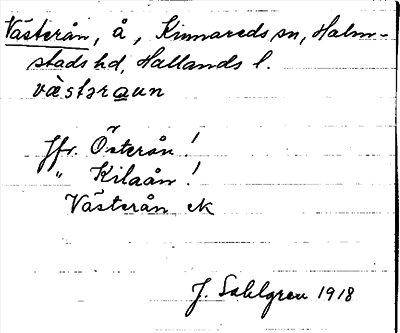 Västerån, å, Kinnareds sn, Halm-
stads hd, Hallands l.
væstəraun
Jfr. Österån!
" Kilaån!
Västerån ek
J. Sahlgren 1918